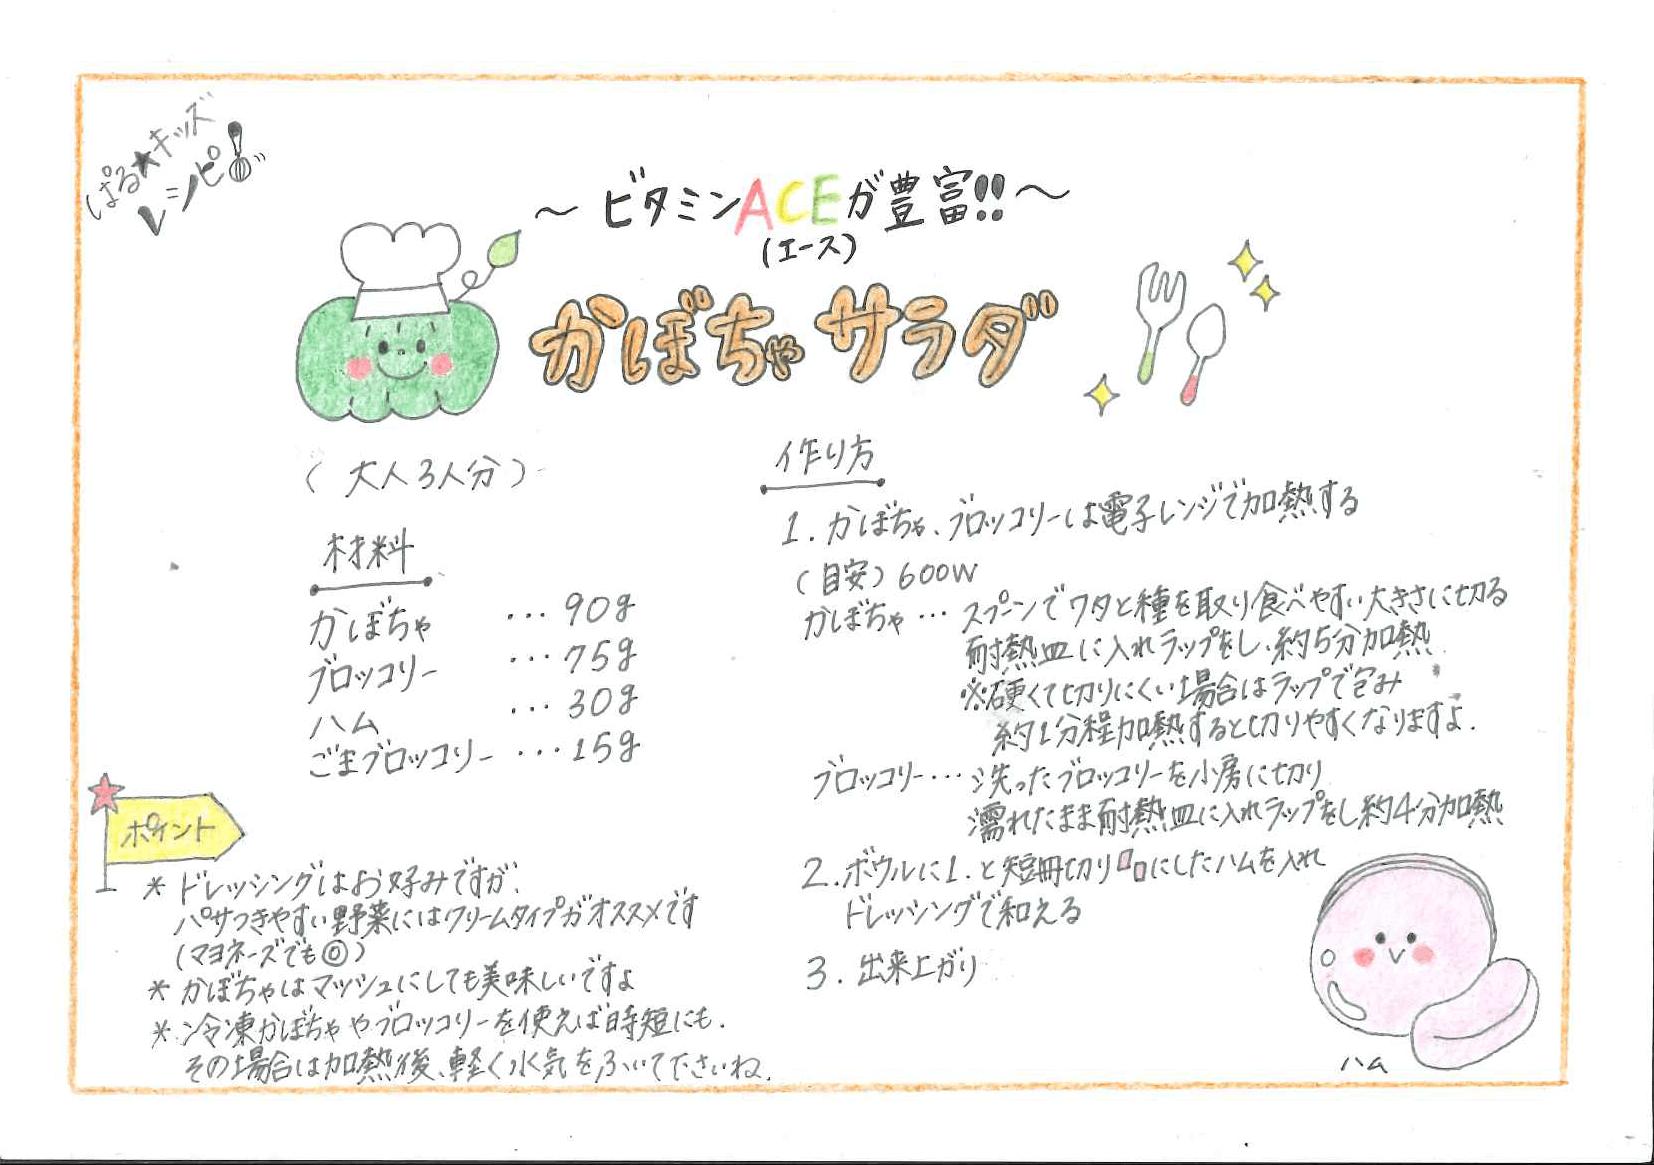 ぱる★キッズ
レシピ
～ ビタミンACEが豊富!! ～
(エース)
かぼちゃサラダ
(大人3人分)
材料
かぼちゃ …90g
ブロッコリー …75g
ハム …30g
ごまブロッコリー …15g
ポイント
* ドレッシングはお好みですが、
パサつきやすい野菜にはクリームタイプがオススメです
(マヨネーズでも◎)
* かぼちゃはマッシュにしても美味しいですよ
* 冷凍かぼちゃやブロッコリーを使えば時短にも.
その場合は加熱後、軽く水気をふいて下さいね.
作り方
1. かぼちゃ、ブロッコリーは電子レンジで加熱する
(目安) 600W
かぼちゃ… スプーンでワタと種を取り食べやすい大きさに切る
耐熱皿に入れラップをし、約5分加熱
※硬くて切りにくい場合はラップで包み
約1分程加熱すると切りやすくなりますよ.
ブロッコリー… 洗ったブロッコリーを小房に切り
濡れたまま耐熱皿に入れラップをし約4分加熱
2. ボウルに1.と短冊切りにしたハムを入れ
ドレッシングで和える
3. 出来上がり
ハム